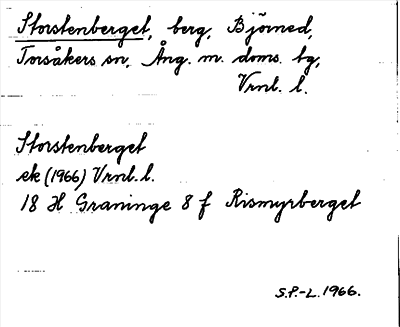 Storstenberget, berg, Björned,
Torsåkers sn, Ång. m. doms. bg,
Vrnl. l.
Storstenberget
ek (1966) Vrnl. l.
18 H Graninge 8 f Rismyrberget
S.P.-L. 1966.